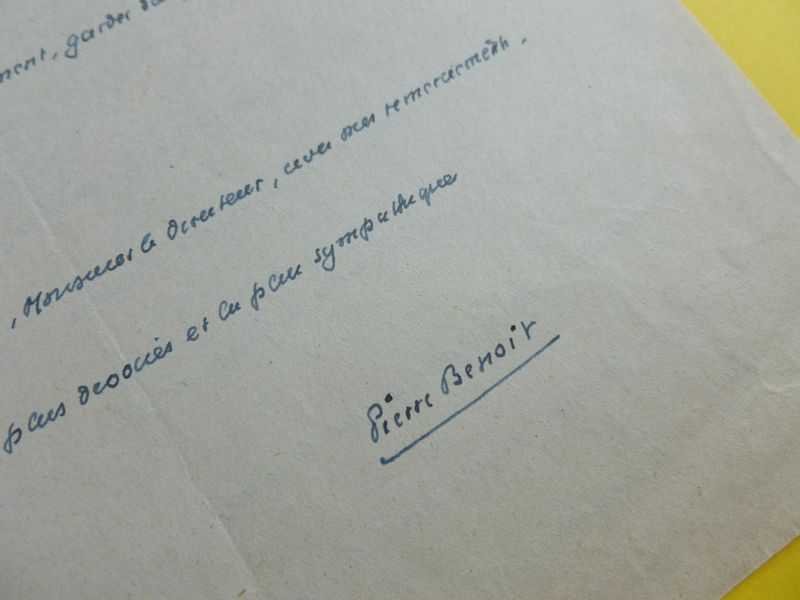 , garder
, Monsieur le directeur, avec mes remerciements.
plus dévoués et les plus sympathiques
Pierre Benoit